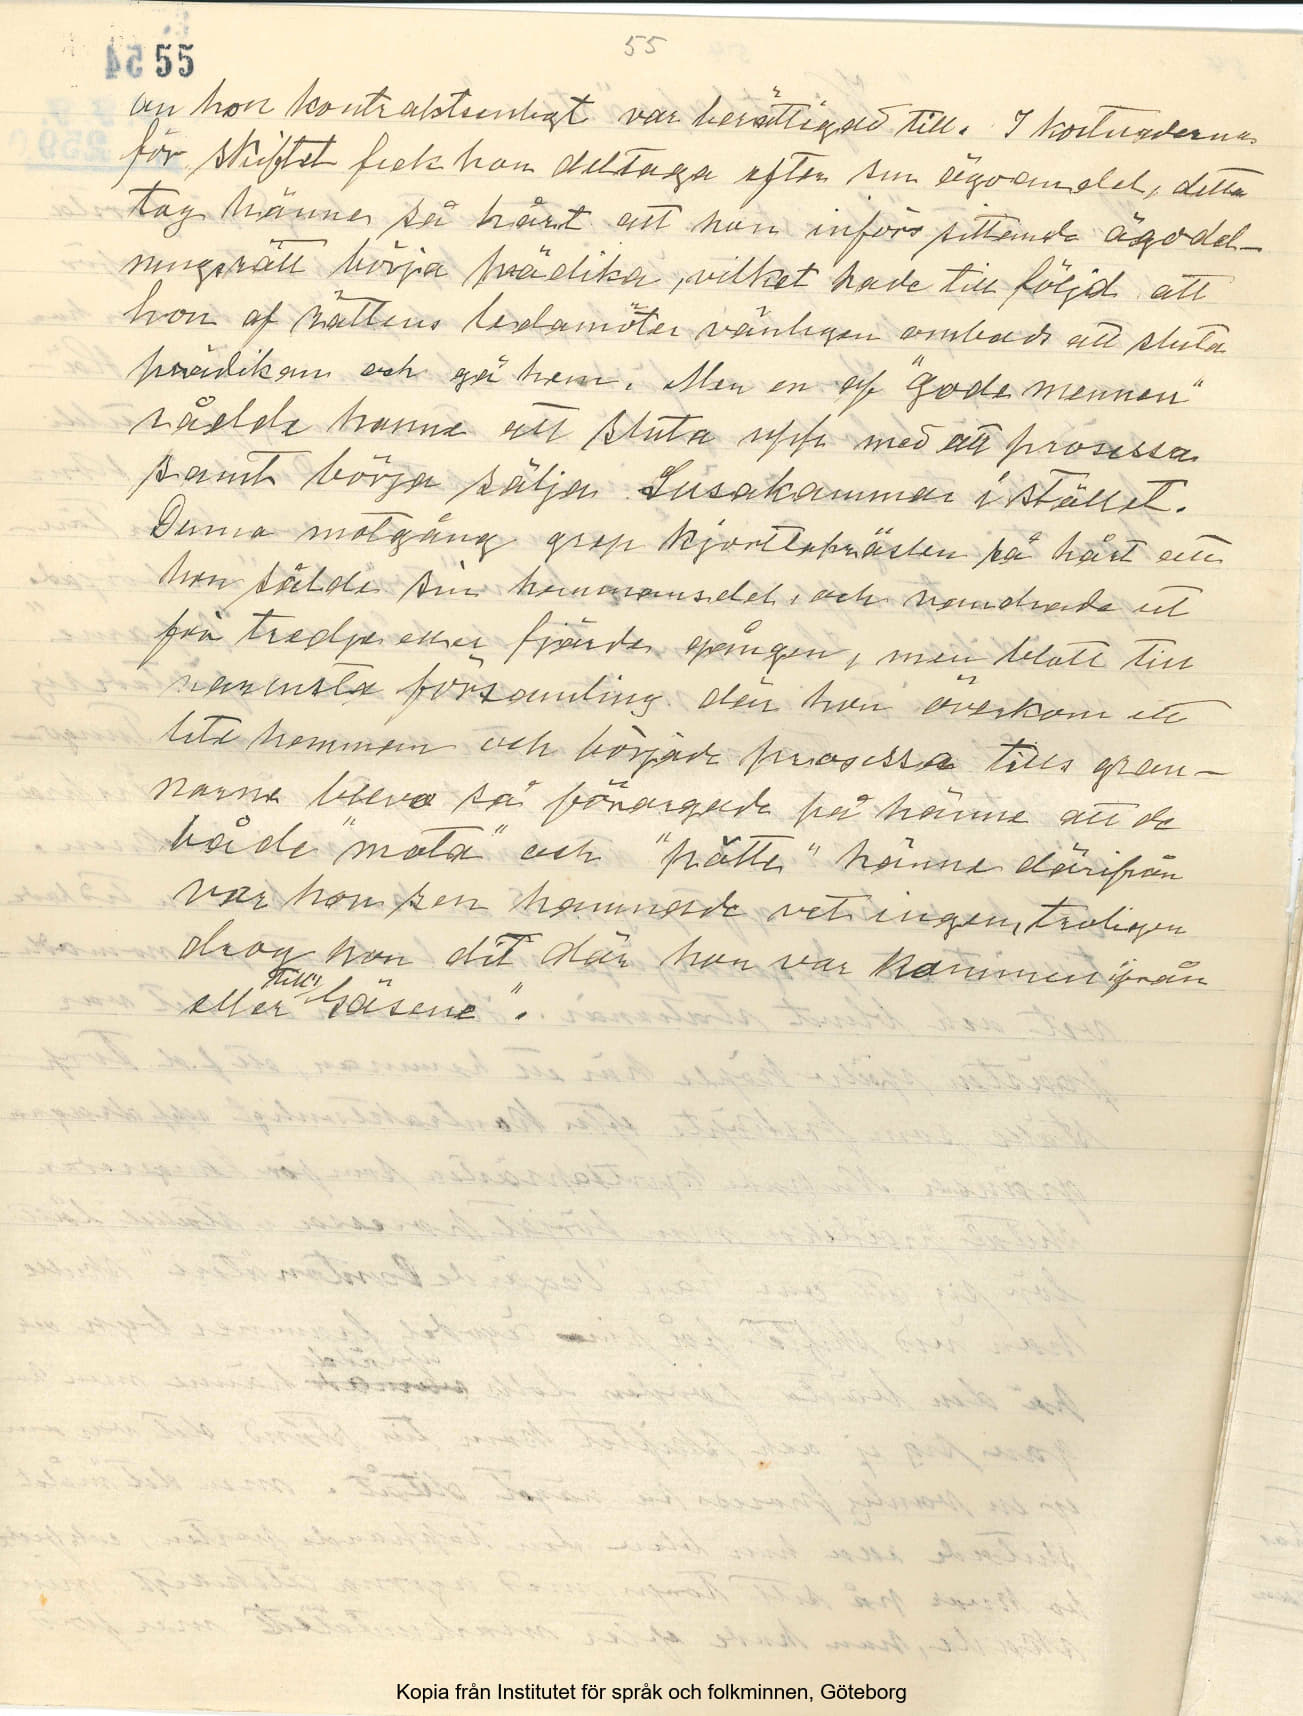 55
55
än hon kontraktsenligt var berättigad till. I kostnaderna
för skiftet fick hon deltaga efter sin ägoandel, detta
tog hänne så hårt att hon inför sittande ägodel-
ningsrätt börja prädika, vilket hade till följd att
hon af rättens ledamöter vänligen ombads att sluta
prädikan och gå hem. Men en af "gode mennen"
rådde hanne att sluta upp med att prosessa
samt börja sälja Lusakammar i stället.
Denna motgång grep kjorttelprästen så hårt att
hon sålde sin hemmansdel, och vandrade ut
för tredje eller fjärde gången, men blott till
närmsta församling där hon överkom ett
lite hemman och började prosessa tills gran-
narne bleva så förargade på hänne att de
både "mota" och "hötte" hänne därifrån
var hon sen hamnade vet ingen, troligen
drog hon dit där hon var kommen ifrån
eller "till Gäsene".
Kopia från Institutet för språk och folkminnen, Göteborg